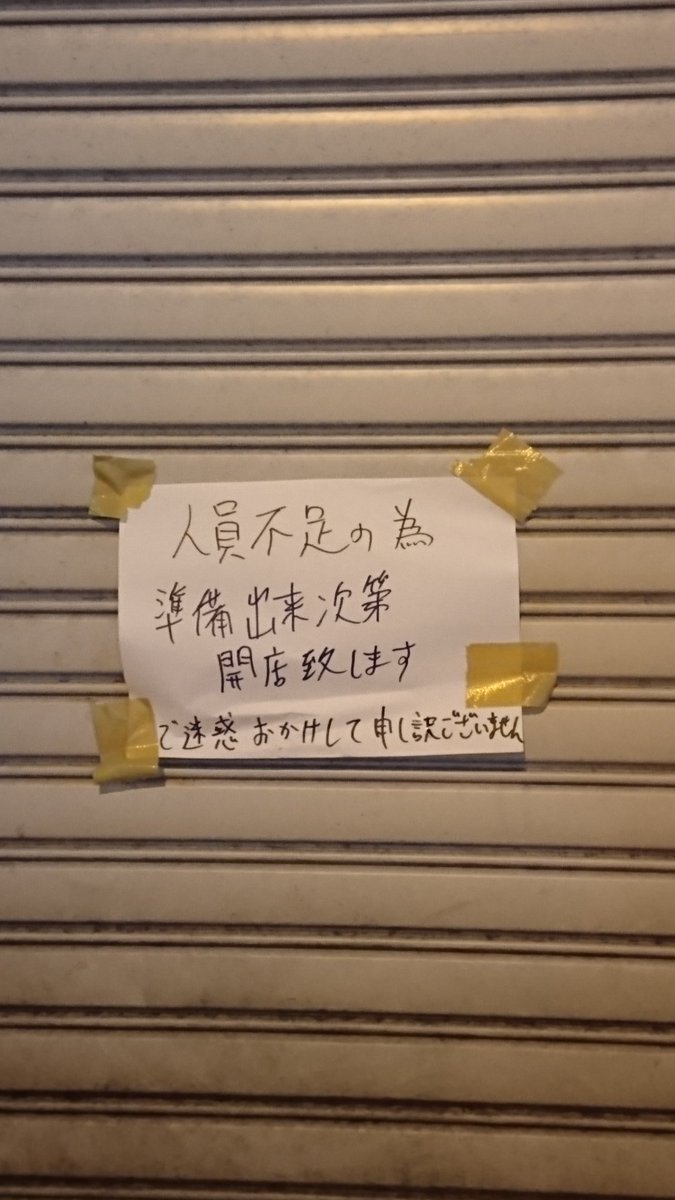 人員不足の為
準備出来次第
開店致します
ご迷惑おかけして申し訳ございません